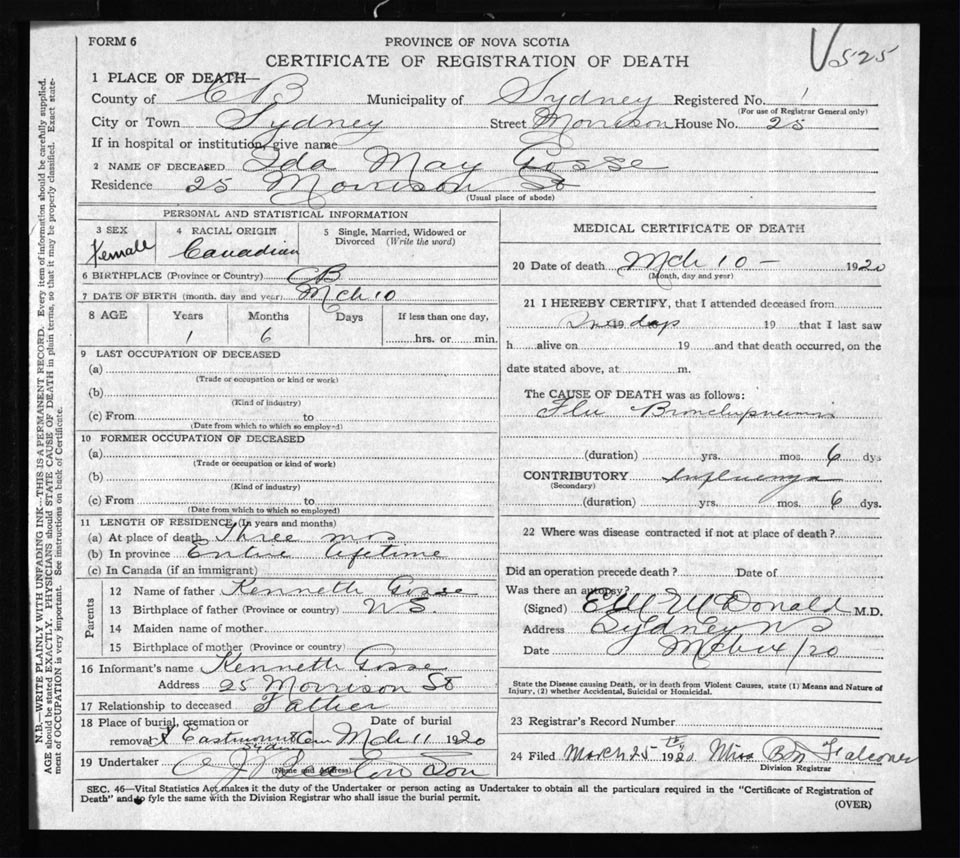 FORM 6
PROVINCE OF NOVA SCOTIA
525
CERTIFICATE OF REGISTRATION OF DEATH
1 PLACE OF DEATH—
County of C B Municipality of Sydney Registered No. 1
(For use of Registrar General only)
City or Town Sydney Street Morrison House No. 25
If in hospital or institution, give name
2 NAME OF DECEASED Ida May Gosse
Residence 25 Morrison St
(Usual place of abode)
PERSONAL AND STATISTICAL INFORMATION
3 SEX 4 RACIAL ORIGIN 5 Single, Married, Widowed or Divorced (Write the word)
Female Canadian
6 BIRTHPLACE (Province or Country) CB
7 DATE OF BIRTH (month, day and year) Mch 10
8 AGE Years Months Days If less than one day,
1 6 hrs. or min.
9 LAST OCCUPATION OF DECEASED
(a)
(Trade or occupation or kind or work)
(b)
(Kind of industry)
(c) From to
(Date from which to which so employed)
10 FORMER OCCUPATION OF DECEASED
(a)
(Trade or occupation or kind of work)
(b)
(Kind of industry)
(c) From to
(Date from which to which so employed)
11 LENGTH OF RESIDENCE (In years and months)
(a) At place of death Three mos
(b) In province Entire lifetime
(c) In Canada (if an immigrant)
Parents
12 Name of father Kenneth Gosse
13 Birthplace of father (Province or country) N S.
14 Maiden name of mother
15 Birthplace of mother (Province or country)
16 Informant's name Kenneth Gosse
Address 25 Morrison St
17 Relationship to deceased Father
18 Place of burial, cremation or Date of burial
removal Eastmount Cem Mch 11 1920
Sydney
19 Undertaker A J Beaton Son
(Name and Address)
MEDICAL CERTIFICATE OF DEATH
20 Date of death Mch 10 — 1920
(Month, day and year)
21 I HEREBY CERTIFY, that I attended deceased from
19 19 that I last saw
h alive on 19 and that death occurred, on the
date stated above, at m.
The CAUSE OF DEATH was as follows:
Flu Bronchopneumonia
(duration) yrs. mos. 6 dys
CONTRIBUTORY Influenza
(Secondary)
(duration) yrs. mos. 6 dys.
22 Where was disease contracted if not at place of death?
Did an operation precede death? Date of
Was there an autopsy?
(Signed) McDonald M.D.
Address Sydney NS
Date Mch 14/20
State the Disease causing Death, or in death from Violent Causes, state (1) Means and Nature of
Injury, (2) whether Accidental, Suicidal or Homicidal.
23 Registrar's Record Number
24 Filed March 25th 1920 Miss Falconer
Division Registrar
SEC. 46—Vital Statistics Act makes it the duty of the Undertaker or person acting as Undertaker to obtain all the particulars required in the "Certificate of Registration of
Death" and to fyle the same with the Division Registrar who shall issue the burial permit.
(OVER)
N.B.—WRITE PLAINLY WITH UNFADING INK—THIS IS A PERMANENT RECORD. Every item of information should be carefully supplied.
AGE should be stated EXACTLY. PHYSICIANS should STATE CAUSE OF DEATH in plain terms, so that it may be properly classified. Exact state-
ment of OCCUPATION is very important. See instructions on back of Certificate.